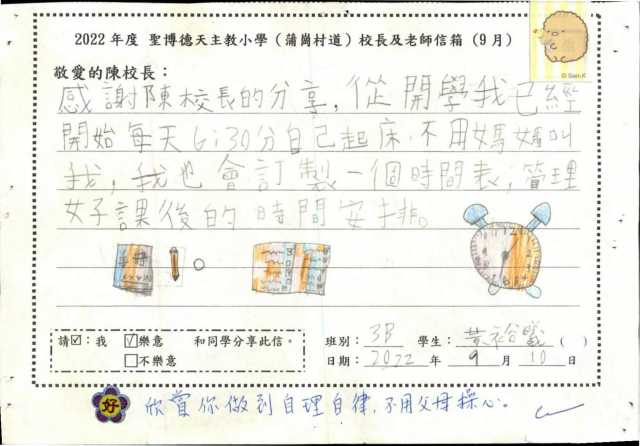 2022 年度 聖博德天主教小學（蒲崗村道）校長及老師信箱（9 月）
敬愛的陳校長：
感謝陳校長的分享，從開學我已經
開始每天6:30分自己起床，不用媽媽叫
我，我也會訂製一個時間表，管理
好課後的時間安排。
請☑：我 ☑樂意 和同學分享此信。 班別： 3B 學生： 黃 （ ）
☐不樂意 日期： 2022 年 9 月 10 日
好 欣賞你做到自理自律，不用父母操心。